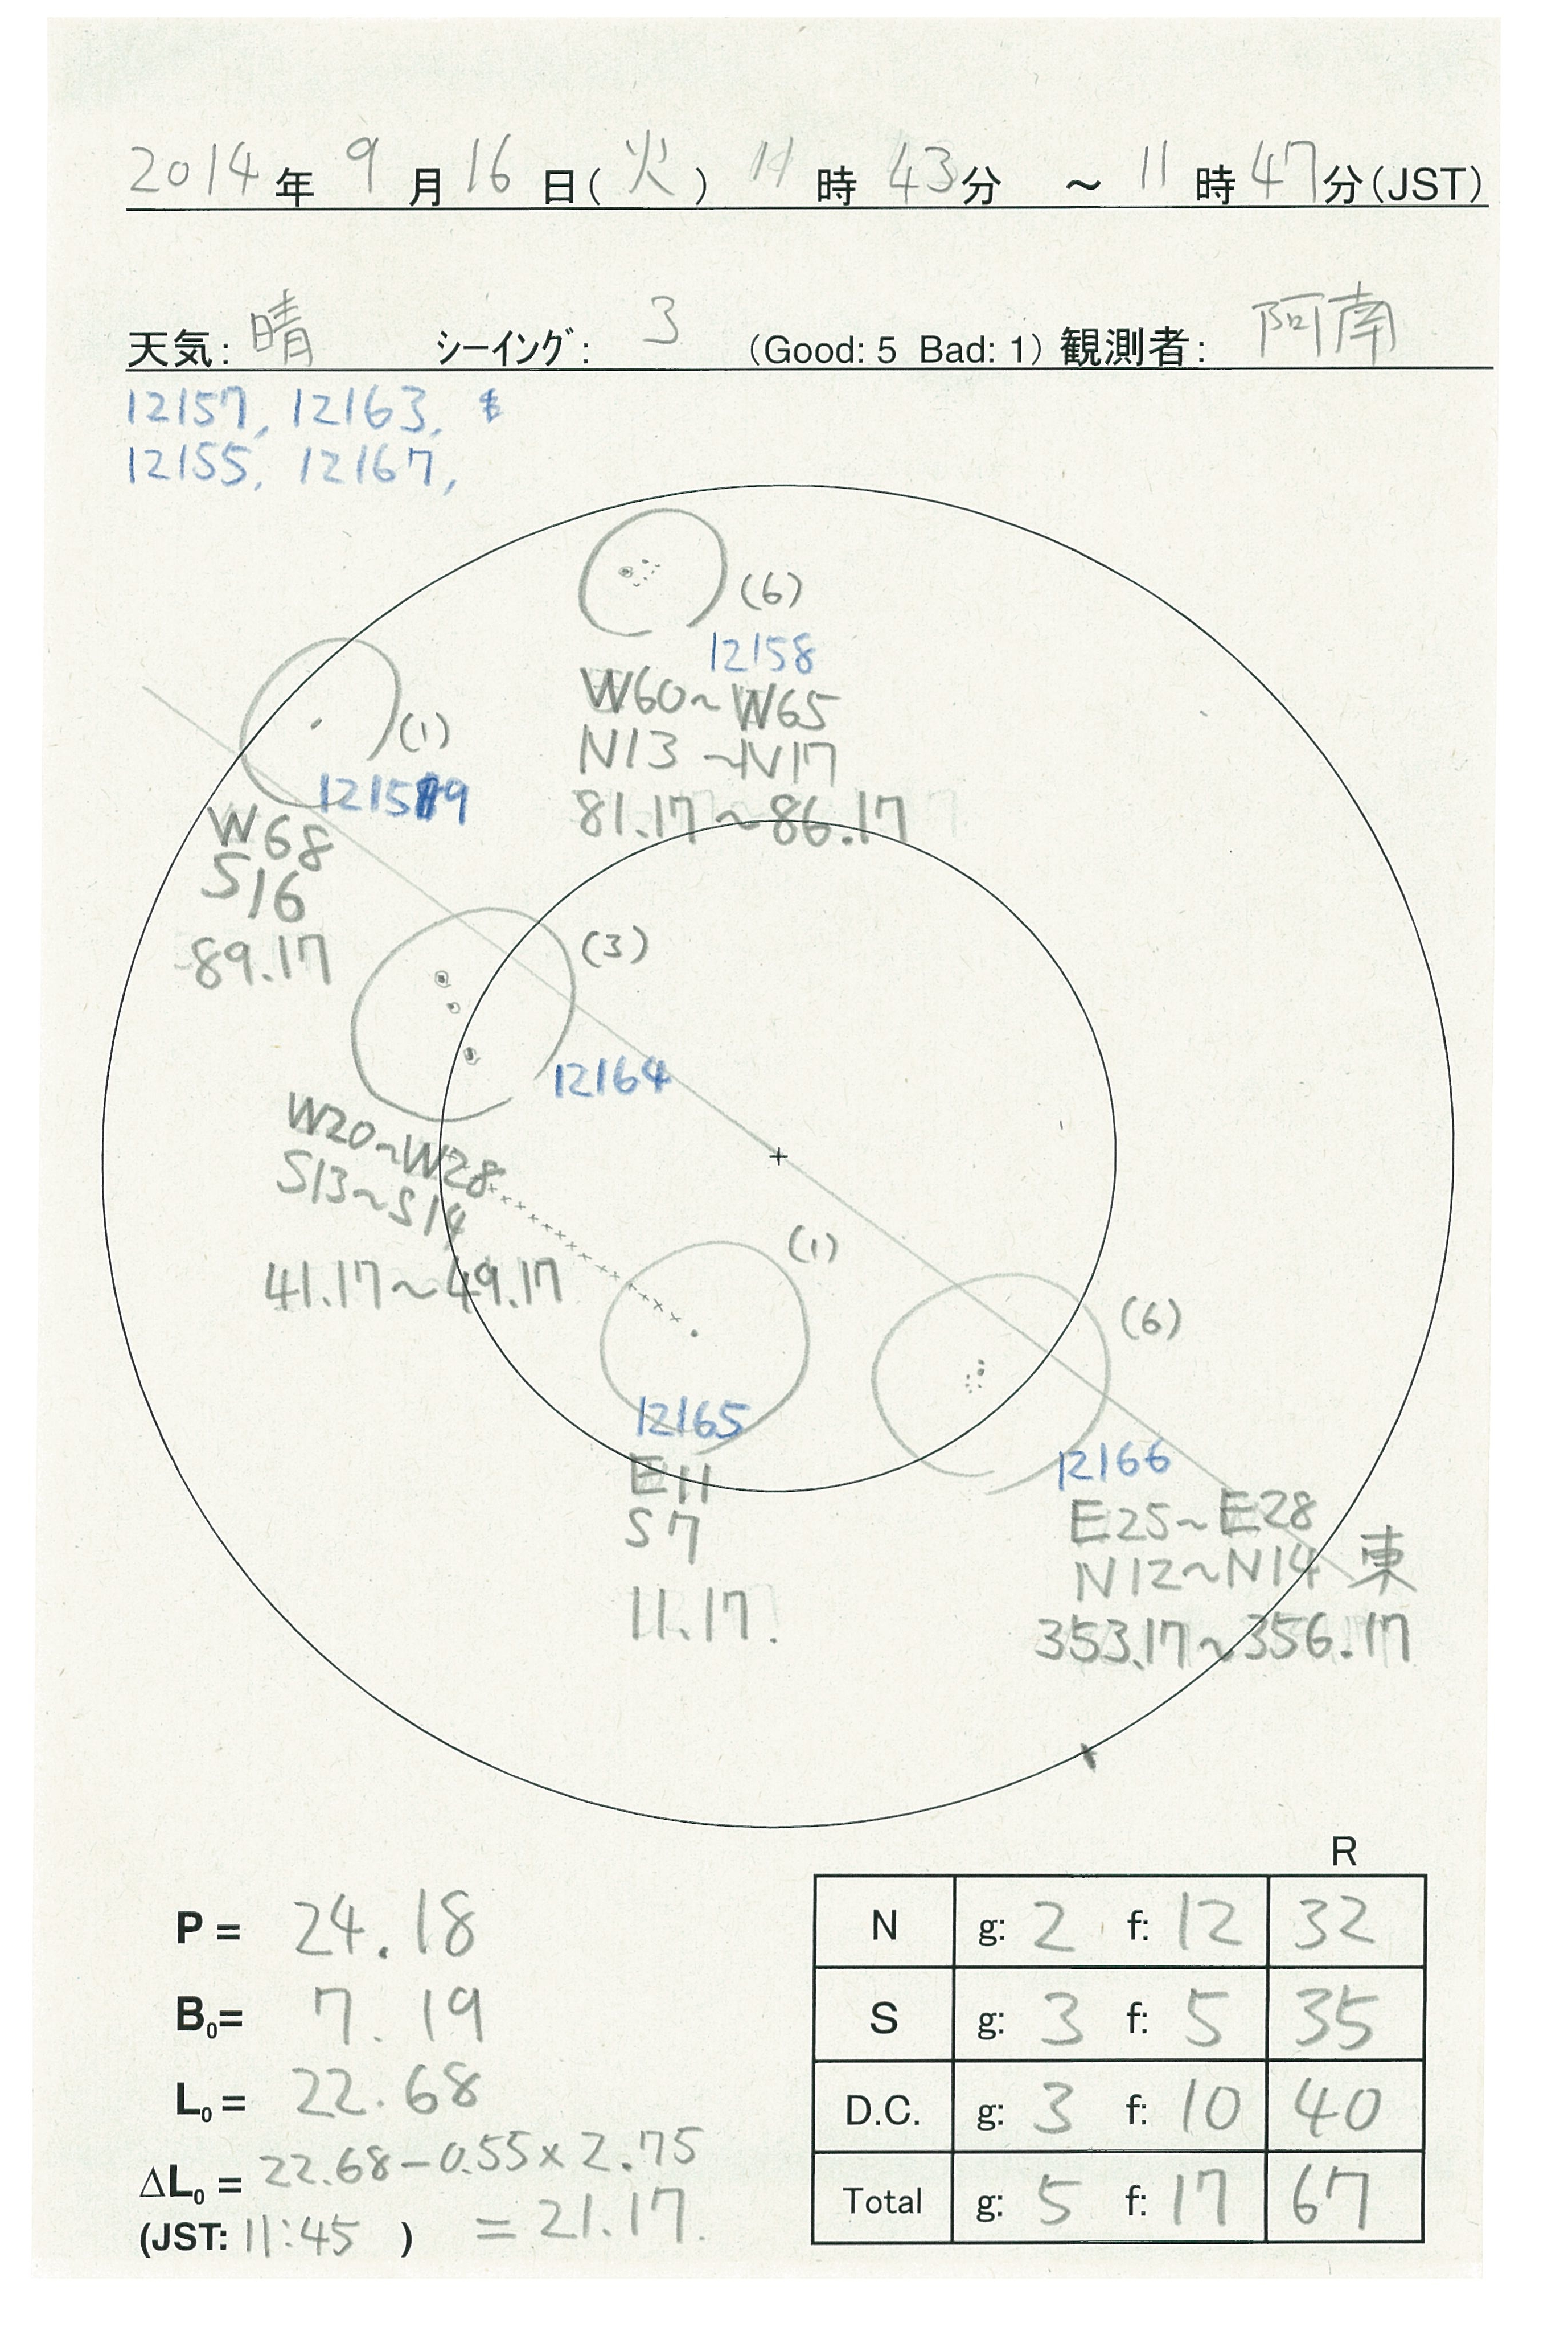 2014年 9月16日(火) 11時 43分 ～ 11時47分(JST)
天気: 晴 シーイング: 3 (Good: 5 Bad: 1) 観測者: 阿南
12157, 12163,
12155, 12167,
(6)
12158
W60~W65
N13~N17
81.17~86.17
(1)
12159
W68
S16
89.17
(3)
12164
W20~W28
S13~S14
41.17~49.17
(1)
12165
E11
S7
11.17.
(6)
12166
E25~E28
N12~N14
東
353.17~356.17
P = 24.18
B₀= 7.19
L₀= 22.68
ΔL₀ = 22.68-0.55×2.75
(JST: 11:45 ) = 21.17.
R
N g: 2 f: 12 32
S g: 3 f: 5 35
D.C. g: 3 f: 10 40
Total g: 5 f: 17 67